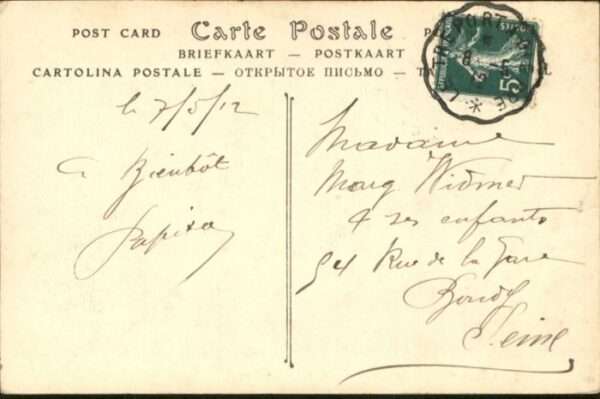 POST CARD Carte Postale
BRIEFKAART — POSTKAART
CARTOLINA POSTALE — ОТКРЫТОЕ ПИСЬМО —
TREPORT
5c
le 7/5/12
a Bientôt
Madame
Marg Widmer
& ses enfants
54 Rue de la Gare
Bondy
Seine